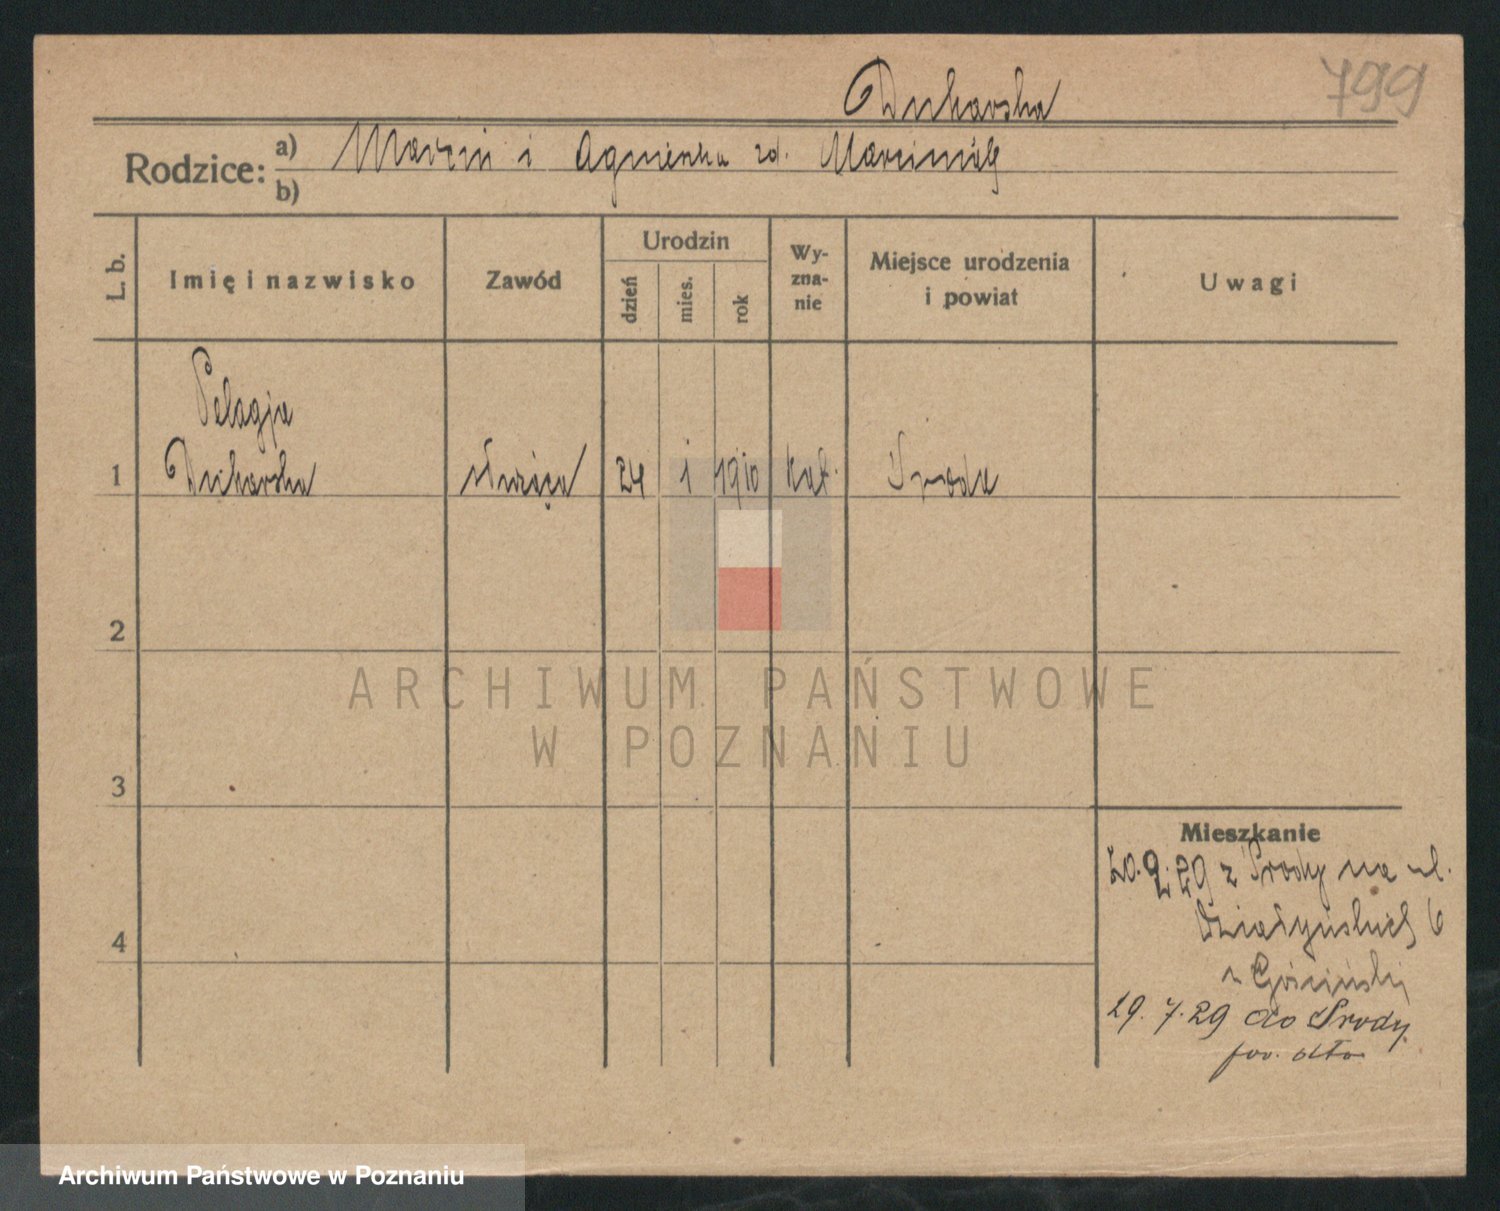 Dukarska
799
Rodzice: a) Marcin i Agnieszka zd. Marciniak
b)
L. b.
Imię i nazwisko
Zawód
Urodzin
dzień
mies.
rok
Wy-
zna-
nie
Miejsce urodzenia
i powiat
Uwagi
Pelagja
1 Dukarska służąca 24 1 1910 kat. Środa
2
3
4
Mieszkanie
20.2.29 z Środy na ul.
Działyńskich 6
u
29.7.29 do Środy
pow. dto
ARCHIWUM PAŃSTWOWE
W POZNANIU
Archiwum Państwowe w Poznaniu